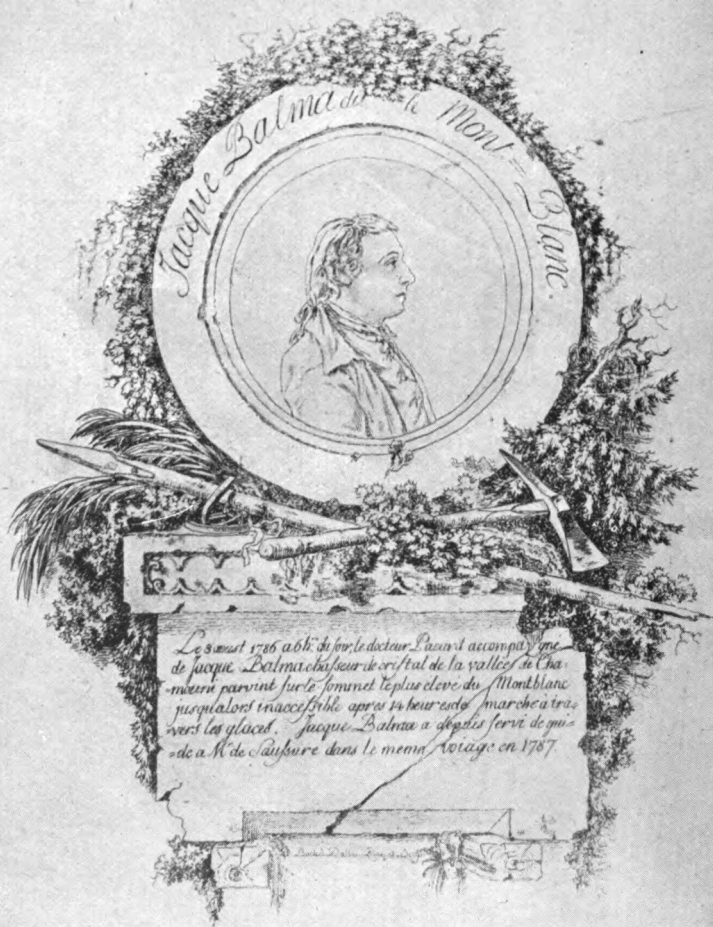 Jacque Balma dit le Mont = Blanc.
Le 8 aoust 1786 a 6 hr. du soir, le docteur Pacard accompagne
de Jacque Balma chasseur de cristal de la vallée de Cha-
-mouni parvint sur le sommet le plus elevé du Montblanc
jusqualors inaccessible apres 14 heures de marche a tra-
-vers les glaces. Jacque Balma a depuis servi de gui-
-de a Mr. de Saussure dans le meme voiage en 1787.